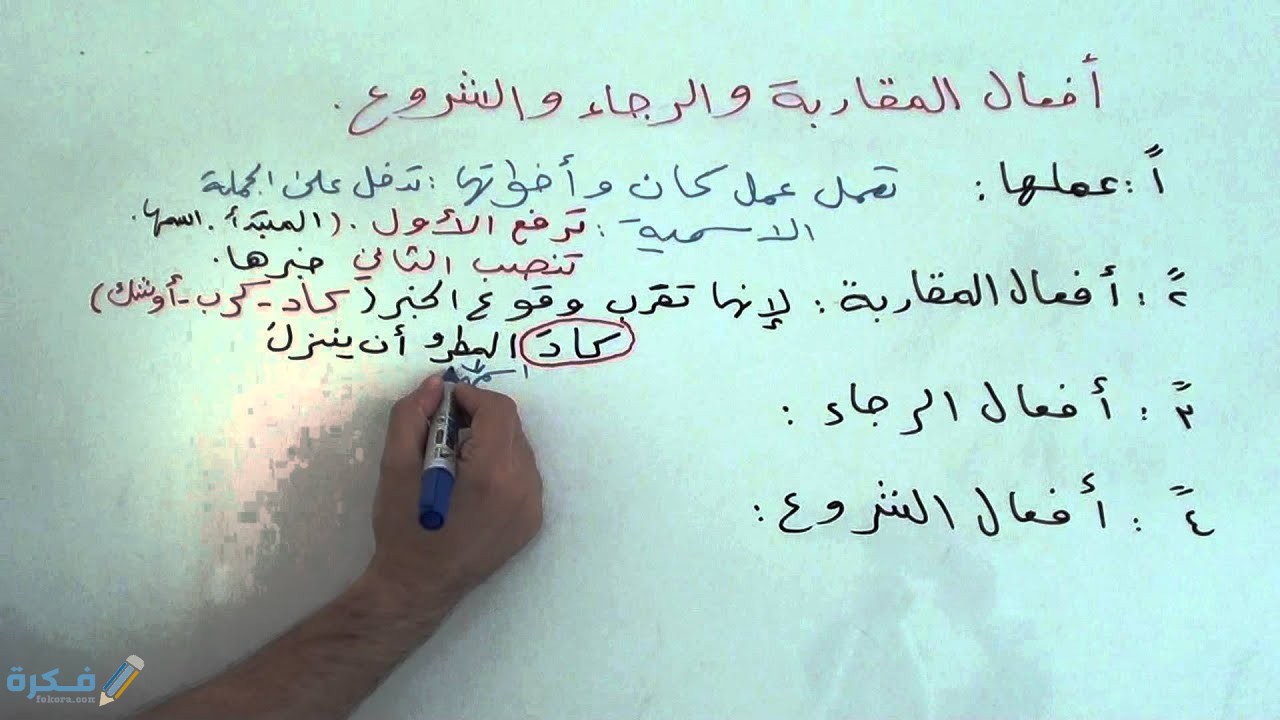 أفعال المقاربة والرجاء والشروع.
أً: عملها: تعمل عمل كان وأخواتها: تدخل على الجملة
الاسمية: ترفع الأول. (المبتدأ. اسمها.
تنصب الثاني خبرها.
٢ً: أفعال المقاربة: لإنها تقرب وقوع الخبر (كاد-كرب-أوشك)
كادَ المطرُ أن ينزلُ
اسمها
٣ً: أفعال الرجاء:
٤ً: أفعال الشروع:
فكرة
fokera.com